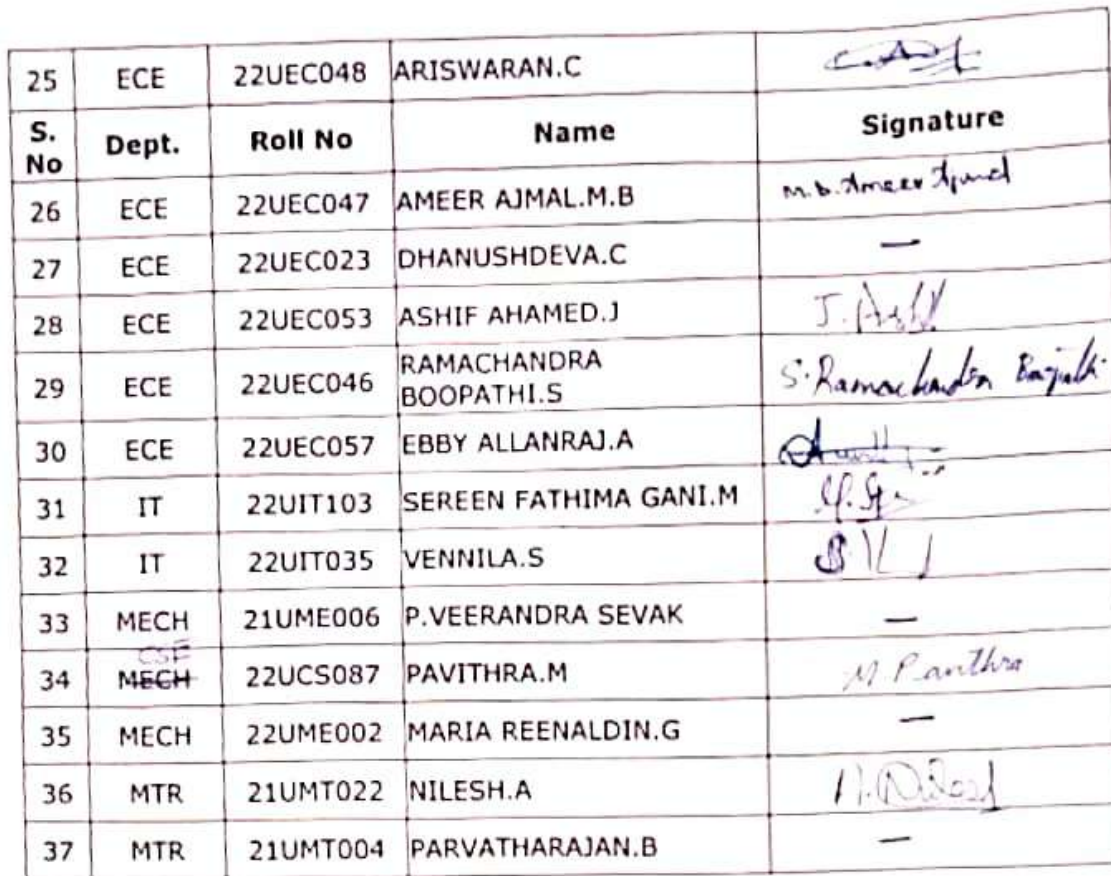 25 ECE 22UEC048 ARISWARAN.C
S. No Dept. Roll No Name Signature
26 ECE 22UEC047 AMEER AJMAL.M.B M.B. Ameer Ajmal
27 ECE 22UEC023 DHANUSHDEVA.C —
28 ECE 22UEC053 ASHIF AHAMED.J J.
29 ECE 22UEC046 RAMACHANDRA
BOOPATHI.S S. Ramachandra
30 ECE 22UEC057 EBBY ALLANRAJ.A
31 IT 22UIT103 SEREEN FATHIMA GANI.M
32 IT 22UIT035 VENNILA.S
33 MECH 21UME006 P.VEERANDRA SEVAK —
CSE
34 MECH 22UCS087 PAVITHRA.M M.
35 MECH 22UME002 MARIA REENALDIN.G —
36 MTR 21UMT022 NILESH.A
37 MTR 21UMT004 PARVATHARAJAN.B —